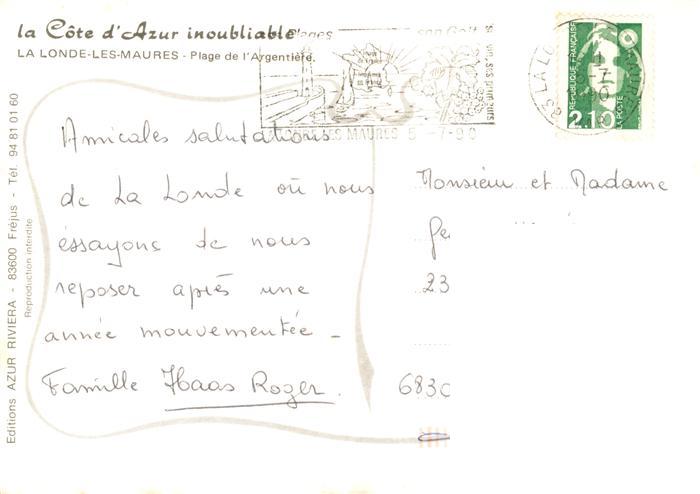 la Côte d'Azur inoubliable
LA LONDE-LES-MAURES - Plage de l'Argentière.
Plages
son Golf
ses primeurs
LES MAURES 5 -7-90
RÉPUBLIQUE FRANÇAISE
2,10
LA POSTE
83 LA LO
Amicales salutations
de La Londe où nous
éssayons de nous
reposer après une
année mouvementée -
Famille Haas Roger.
Monsieur et Madame
Ge
23
6830
Editions AZUR RIVIERA - 83600 Fréjus - Tél. 94 81 01 60
Reproduction interdite